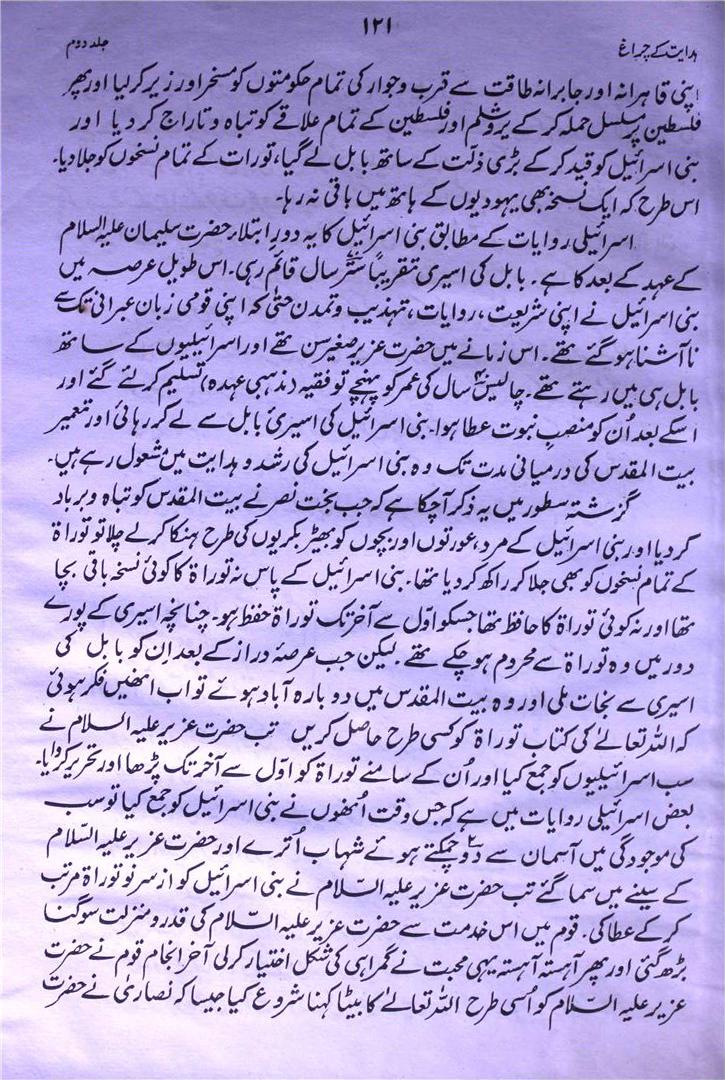 ۱۲۱
ہدایت کے چراغ
جلد دوم
اپنی قاہرانہ اور جابرانہ طاقت سے قرب وجوار کی تمام حکومتوں کو مسخر اور زیر کر لیا اور پھر
فلسطین پر مسلسل حملہ کر کے یروشلم اور فلسطین کے تمام علاقے کو تباہ و تاراج کر دیا اور
بنی اسرائیل کو قید کر کے بڑی ذلّت کے ساتھ بابل لے گیا، تورات کے تمام نسخوں کو جلا دیا۔
اس طرح کہ ایک نسخہ بھی یہودیوں کے ہاتھ میں باقی نہ رہا۔
اسرائیلی روایات کے مطابق بنی اسرائیل کا یہ دورِ ابتلاء حضرت سلیمان علیہ السلام
کے عہد کے بعد کا ہے۔ بابل کی اسیری تقریباً ستّر سال قائم رہی۔ اس طویل عرصہ میں
بنی اسرائیل نے اپنی شریعت، روایات، تہذیب و تمدن حتیٰ کہ اپنی قومی زبان عبرانی تک سے
نا آشنا ہو گئے تھے۔ اس زمانے میں حضرت عزیر صغیر سن تھے اور اسرائیلیوں کے ساتھ
بابل ہی میں رہتے تھے۔ چالیس۴۰ سال کی عمر کو پہنچے تو فقیہ (مذہبی عہدہ) تسلیم کرلئے گئے اور
اسکے بعد اُن کو منصب نبوت عطا ہوا۔ بنی اسرائیل کی اسیریٔ بابل سے لے کر رہائی اور تعمیر
بیت المقدس کی درمیانی مدت تک وہ بنی اسرائیل کی رشد و ہدایت میں مشغول رہے ہیں۔
گزشتہ سطور میں یہ ذکر آچکا ہے کہ جب بخت نصر نے بیت المقدس کو تباہ و برباد
کر دیا اور بنی اسرائیل کے مرد، عورتوں اور بچوں کو بھیڑ بکریوں کی طرح ہنکا کر لے چلا تو توراۃ
کے تمام نسخوں کو بھی جلا کر راکھ کر دیا تھا۔ بنی اسرائیل کے پاس نہ توراۃ کا کوئی نسخہ باقی بچا
تھا اور نہ کوئی توراۃ کا حافظ تھا جسکو اوّل سے آخر تک توراۃ حفظ ہو۔ چنانچہ اسیری کے پورے
دور میں وہ توراۃ سے محروم ہو چکے تھے۔ لیکن جب عرصۂ دراز کے بعد اِن کو بابل کی
اسیری سے نجات ملی اور وہ بیت المقدس میں دوبارہ آباد ہوئے تو اب انھیں فکر ہوئی
کہ اللہ تعالےٰ کی کتاب توراۃ کو کسی طرح حاصل کریں تب حضرت عزیر علیہ السلام نے
سب اسرائیلیوں کو جمع کیا اور اُن کے سامنے توراۃ کو اوّل سے آخر تک پڑھا اور تحریر کروایا۔
بعض اسرائیلی روایات میں ہے کہ جس وقت اُنھوں نے بنی اسرائیل کو جمع کیا تو سب
کی موجودگی میں آسمان سے دو۲ چمکتے ہوئے شہاب اُترے اور حضرت عزیر علیہ السّلام
کے سینے میں سما گئے تب حضرت عزیر علیہ السّلام نے بنی اسرائیل کو از سر نو توراۃ مرتب
کر کے عطا کی۔ قوم میں اس خدمت سے حضرت عزیر علیہ السّلام کی قدر و منزلت سو گنا
بڑھ گئی اور پھر آہستہ آہستہ یہی محبت نے گمراہی کی شکل اختیار کر لی آخر انجام قوم نے حضرت
عزیر علیہ السّلام کو اُسی طرح اللہ تعالےٰ کا بیٹا کہنا شروع کیا جیسا کہ نصاریٰ نے حضرت